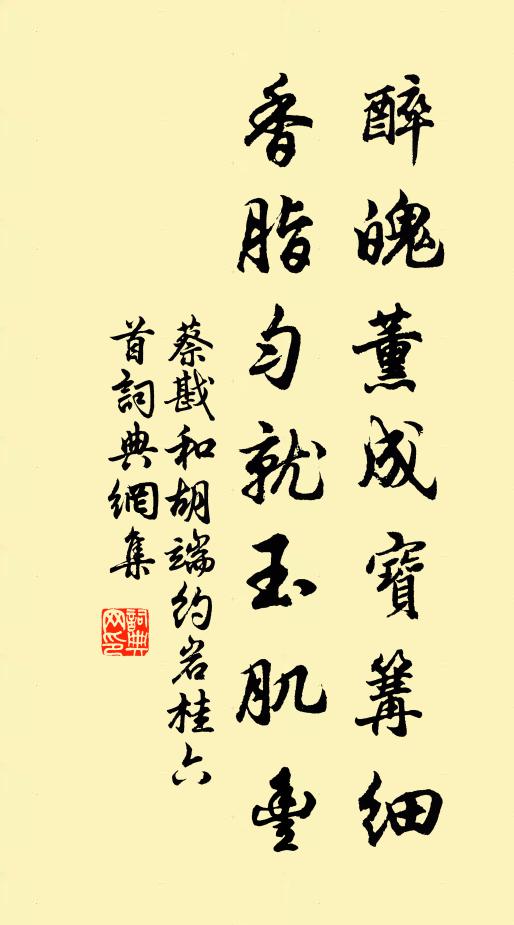 醉魄薰成寶篝細
香脂勻就玉肌豐
蔡戡和胡端約岩桂六
首詞典網集
詞典
网印